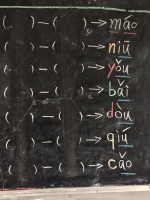 ( ) — ( ) → máo
( ) — ( ) → niú
( ) — ( ) → yǒu
( ) — ( ) → bǎi
( ) — ( ) → dòu
( ) — ( ) → qiú
( ) — ( ) → cǎo